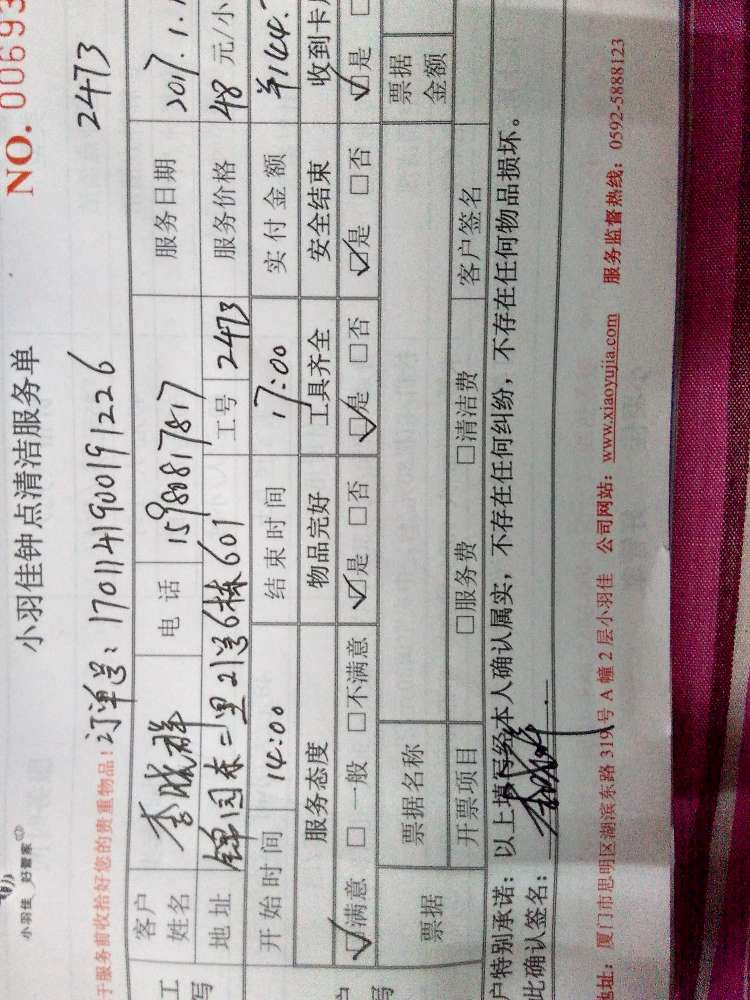 小羽佳 好管家
小羽佳钟点清洁服务单
NO. 00693
于服务前收拾好您的贵重物品！订单号：17011419001912​26 2473
客户姓名 李晓祥 电话 15980817817 服务日期 2017.1.1
地址 锦园东二里21号6栋601 工号 2473 服务价格 48 元/小
开始时间 14:00 结束时间 17:00 实付金额 ￥144.
服务态度 物品完好 工具齐全 安全结束 收到卡
☑满意 □一般 □不满意 ☑是 □否 ☑是 □否 ☑是 □否 ☑是
票据 票据名称 票据金额
开票项目 □服务费 □清洁费 客户签名
户特别承诺：以上填写经本人确认属实，不存在任何纠纷，不存在任何物品损坏。
此确认签名：
地址：厦门市思明区湖滨东路 319 号 A 幢 2 层小羽佳 公司网站：www.xiaoyujia.com 服务监督热线：0592-5888123